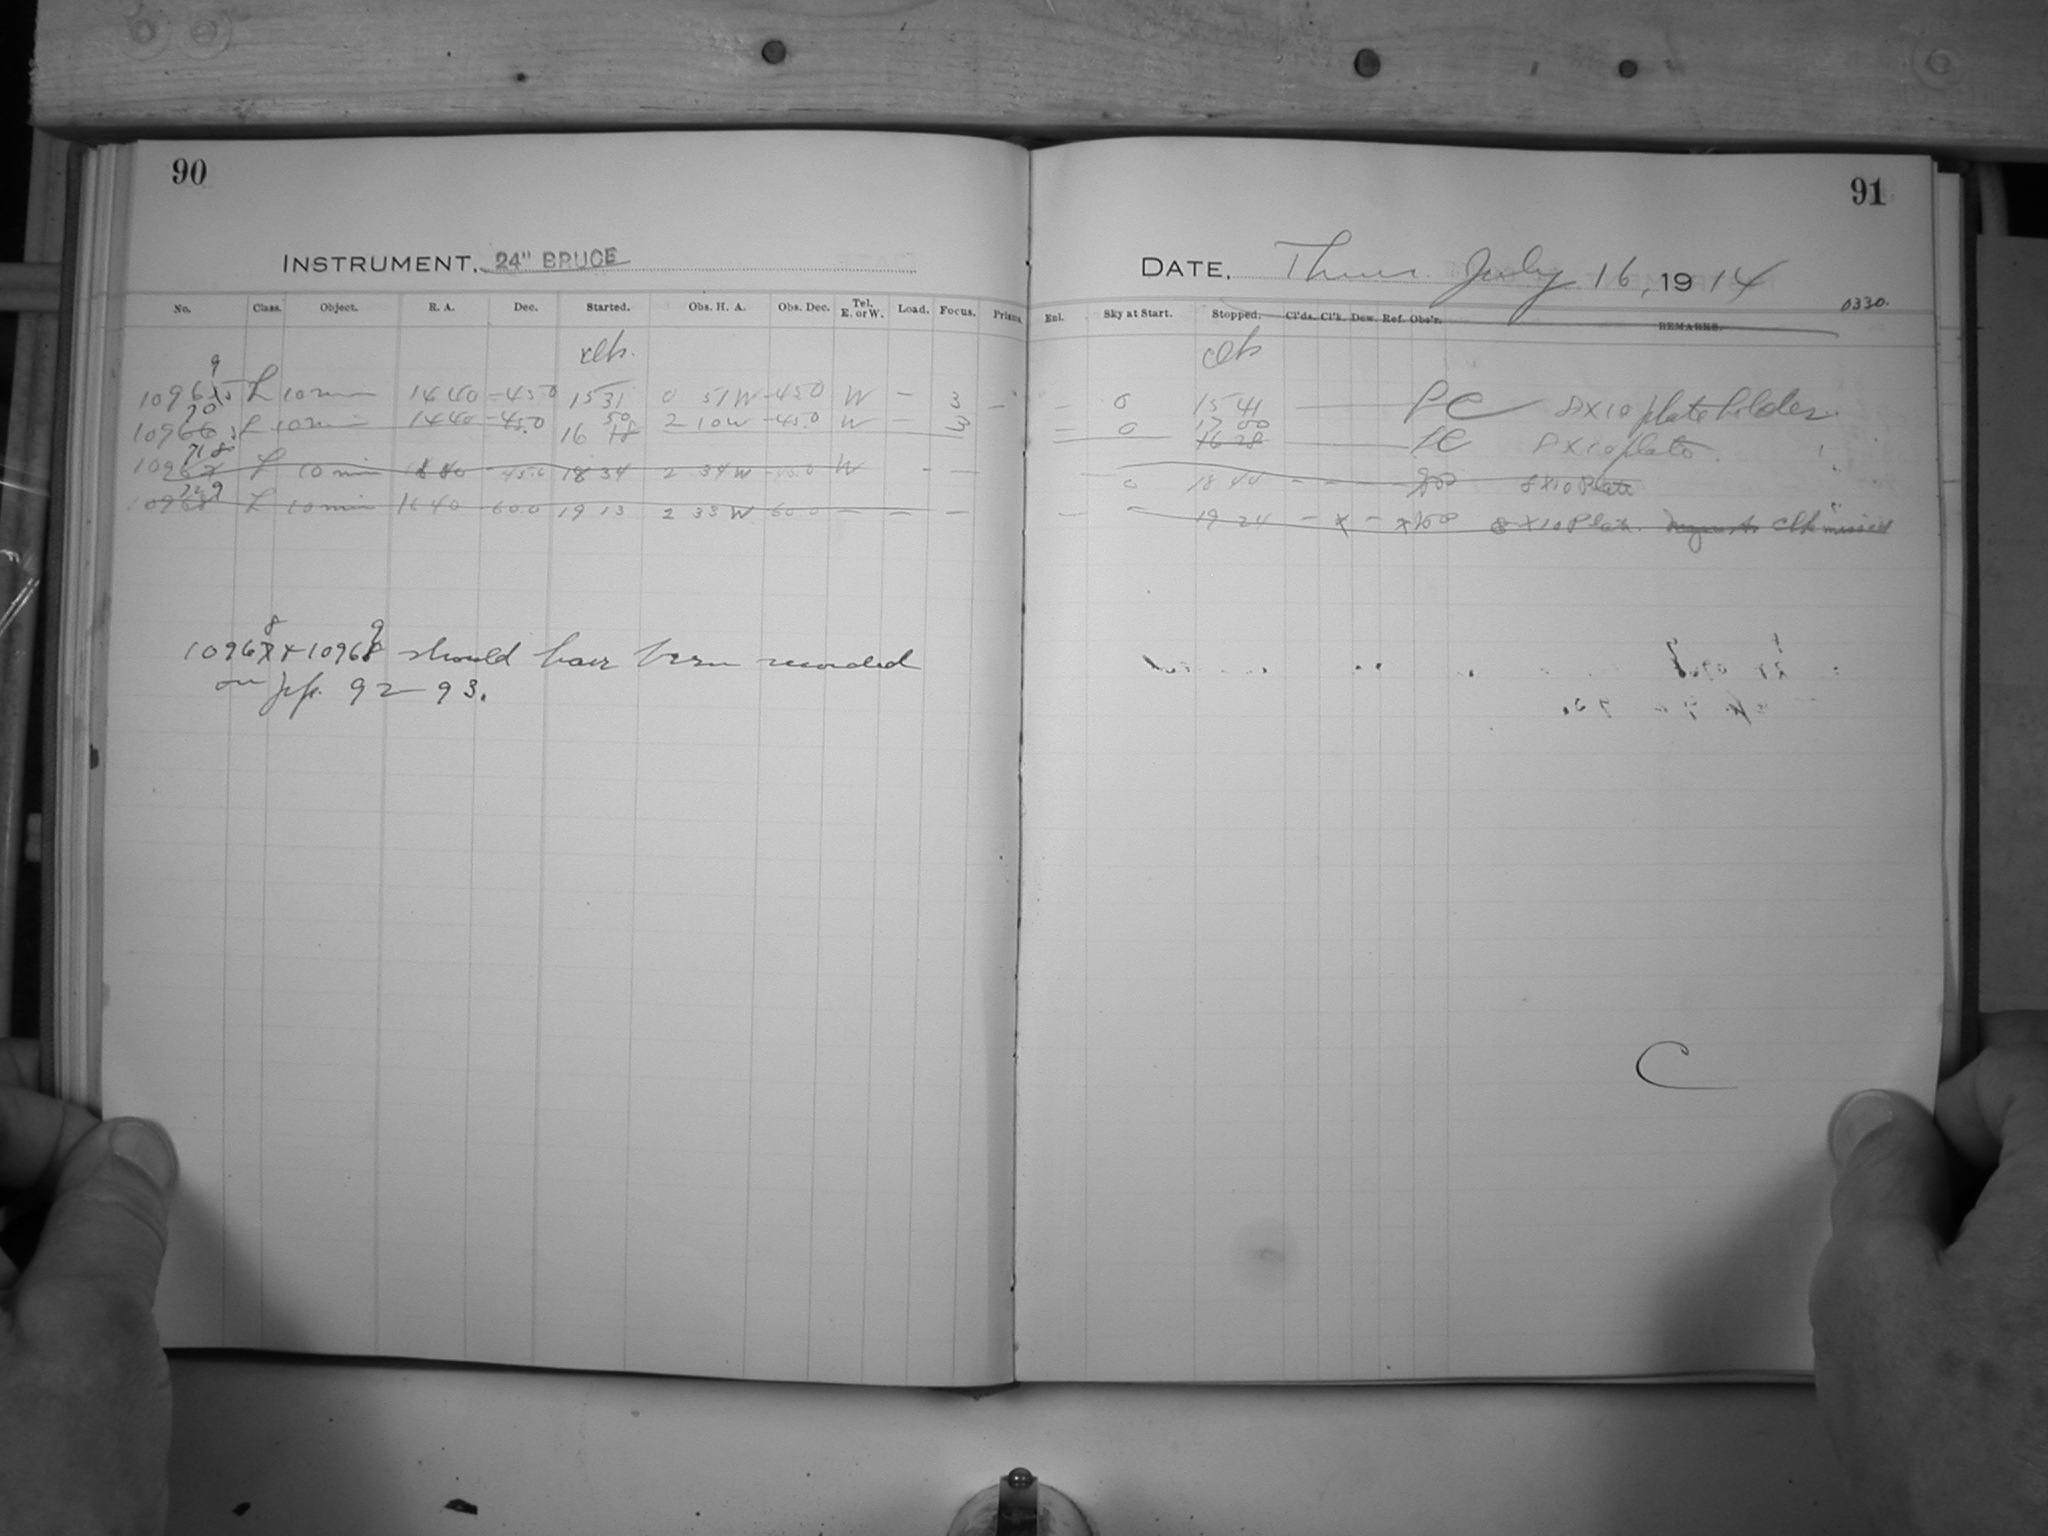 90
INSTRUMENT. 24" BRUCE
No. Class. Object. R. A. Dec. Started. Obs. H. A. Obs. Dec. Tel. E. or W. Load. Focus. Prism.
L 10 min 14 40 -45.0 15 31 0 51 W -45.0 W - 3 -
L 10 min 14 40 -45.0 16 50 2 10 W -45.0 W - 3
L 10 min -45.0 18 34 2 34 W W - -
L 10 min 16 40 60.0 19 13 2 33 W 60.0 - - -
10967 8 + 10968 9 should have been recorded
on pp. 92-93.
91
DATE. Thur. July 16, 1914
0330.
Enl. Sky at Start. Stopped. Cl'ds. Cl'k. Dew. Ref. Obs'r. REMARKS.
- 0 15 41 8X10 plate holder.
- 0 17 00 16 28 8X10 plate.
0 18 44 - - - - 8X10 Plate
- - 19 24 - x - 8X10 Plate. clk missed
C